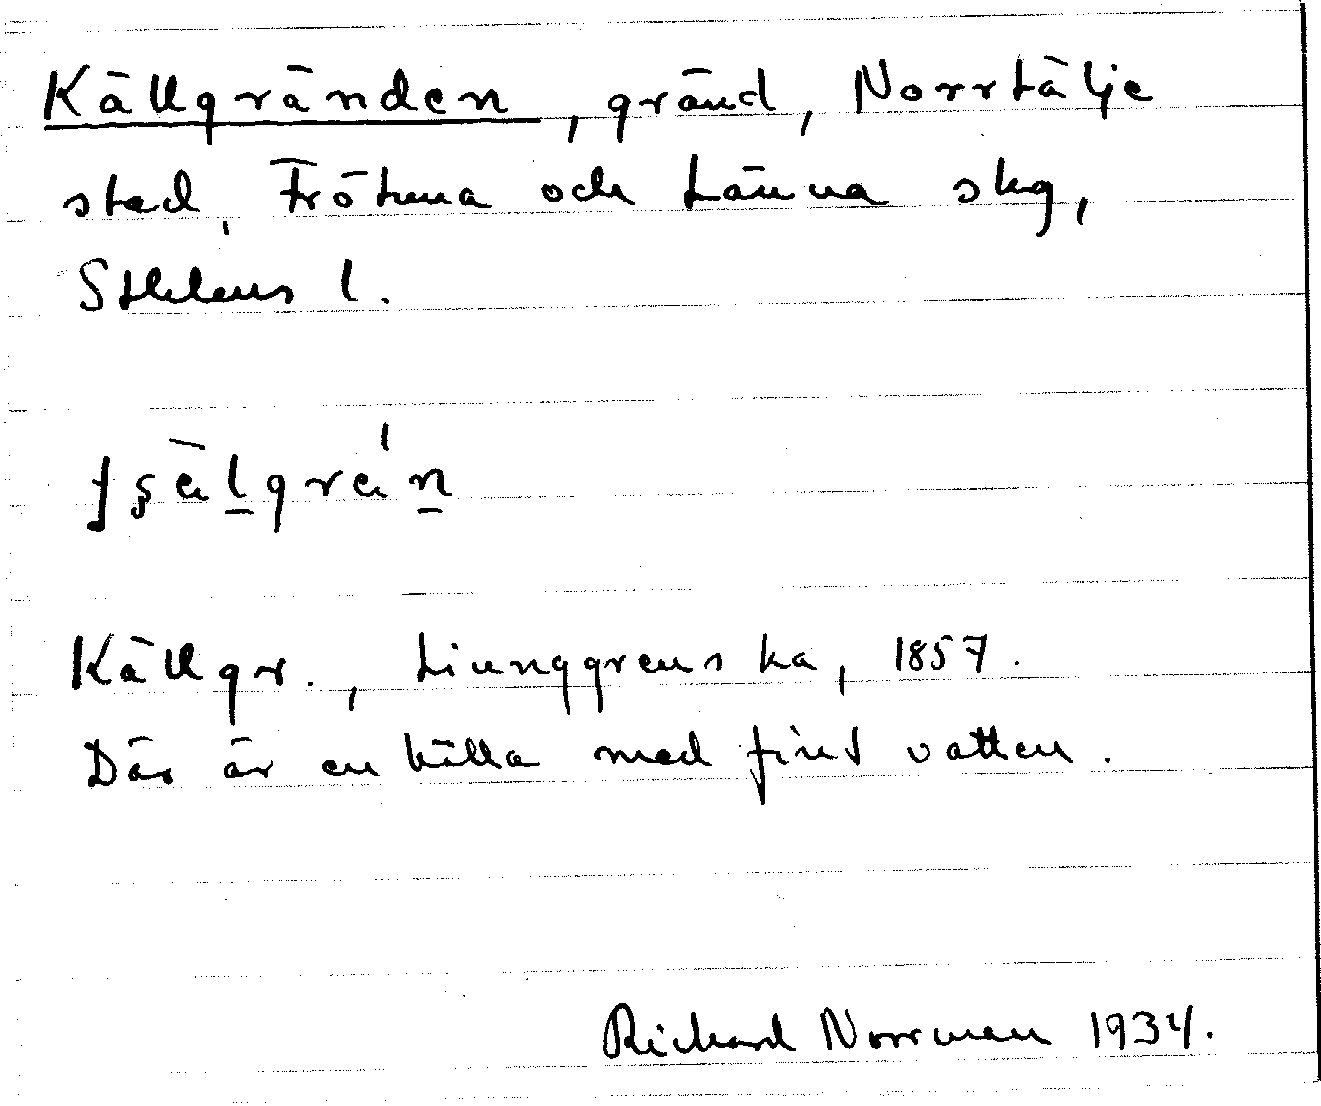 Källgränden, gränd, Norrtälje
stad, Frötuna och Länna skg,
Sthlms l.
Källgr., Liunggrenska, 1857.
Där är en källa med fint vatten.
Richard Norrman 1934.